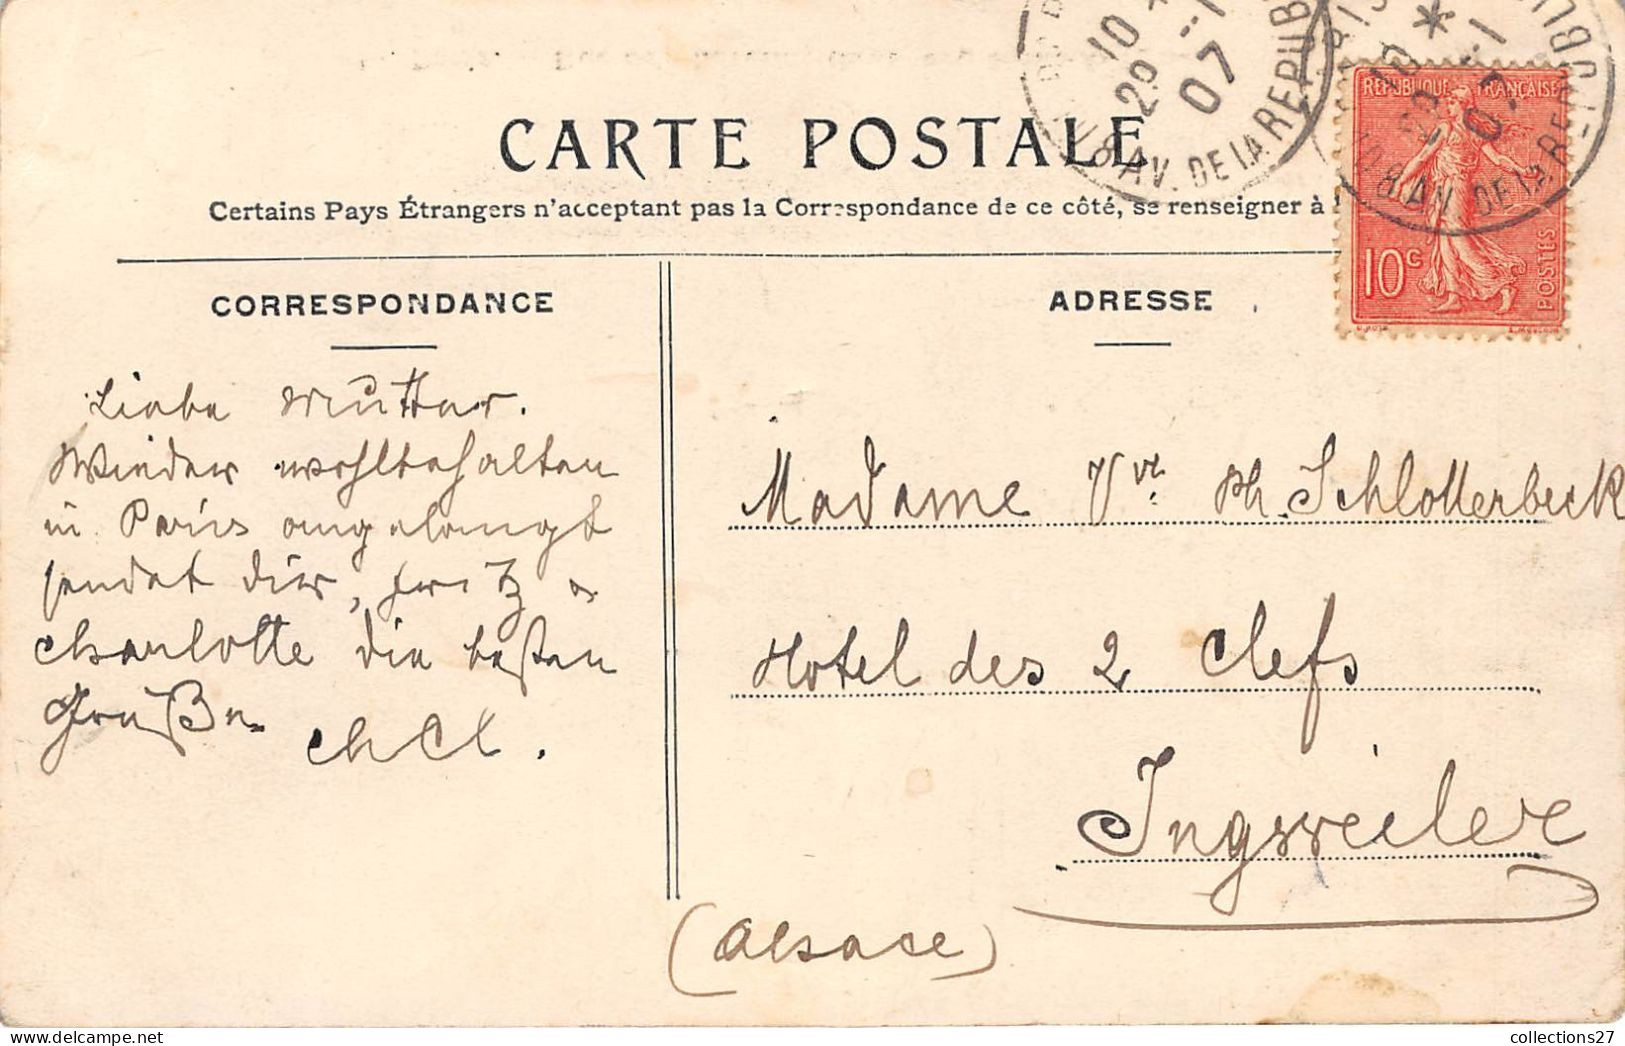 CARTE POSTALE
Certains Pays Étrangers n'acceptent pas la Correspondance de ce côté, se renseigner à
CORRESPONDANCE
Liebe Mutter.
Wieder wohlbehalten
in Paris angelangt
sendet dir, Fritz &
Charlotte die besten
Grüße
ChCl.
ADRESSE
Madame Vve Ph. Schlotterbeck
Hotel des 2 Clefs
Ingweiler
(Alsace)
10 *
29 -1
07
AV. DE LA REPUB
REPUBLIQUE FRANÇAISE
10c
POSTES
10 *
-1
AV. DE LA REPUBLI
collections27